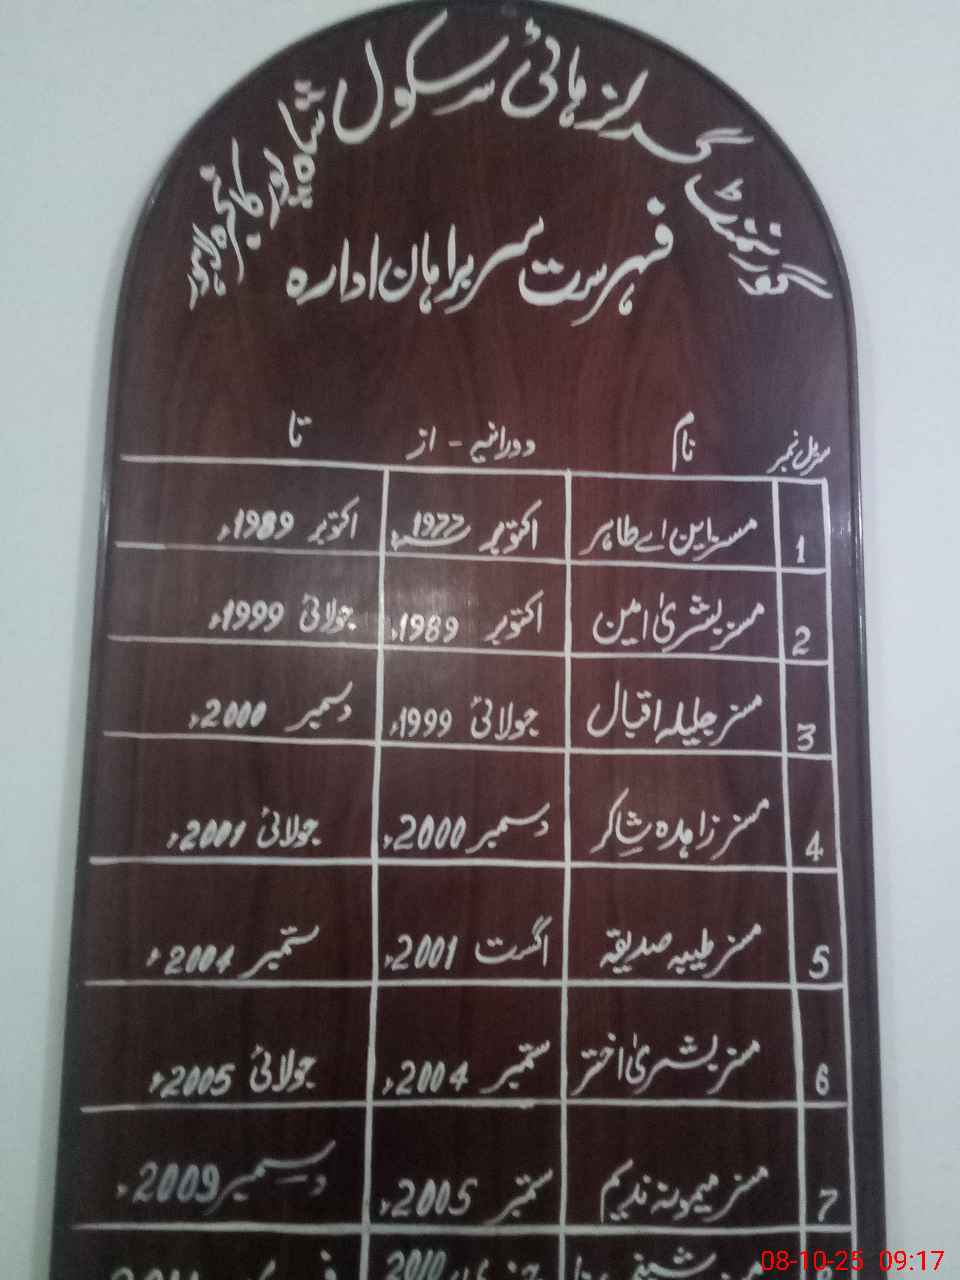 گورنمنٹ گرلز ہائی سکول شاہ پور کانجرہ لاہور
فہرست سربراہان ادارہ
سیریل نمبر نام دورانیہ - از تا
1 مسز این اے طاہر اکتوبر 1977ء اکتوبر 1989ء
2 مسز بشریٰ امین اکتوبر 1989ء جولائی 1999ء
3 مسز جلیلہ اقبال جولائی 1999ء دسمبر 2000ء
4 مسز زاہدہ شاکر دسمبر 2000ء جولائی 2001ء
5 مسز طیبہ صدیقہ اگست 2001ء ستمبر 2004ء
6 مسز بشریٰ اختر ستمبر 2004ء جولائی 2005ء
7 مسز میمونہ ندیم ستمبر 2005ء دسمبر 2009ء
مسز جنوری 2010
08-10-25 09:17